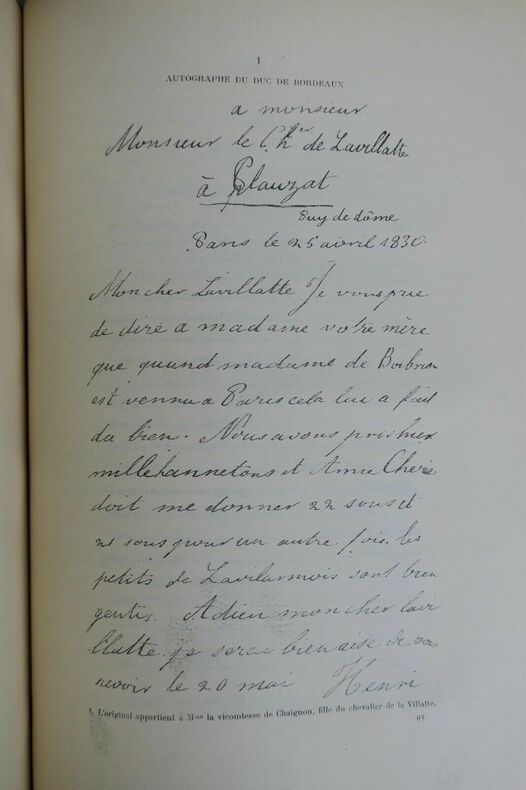 I
AUTOGRAPHE DU DUC DE BORDEAUX
a monsieur
Monsieur le Ch.ier de Lavillatte
à Plauzat
Puy de dôme
Paris le 25 avril 1830
Mon cher Lavillatte Je vous prie
de dire a madame votre mère
que quand madame de Bourbon
est vennu a Paris cela lui a fait
du bien. Nous avons pris hier
mille hannetons et Amie Cherie
doit me donner 22 sous et
sous pour un autre fois. les
petits de Lavilarmois sont bien
gentis. Adieu mon cher Lavi
llatte je serai bien aise de vou
revoir le 20 mai Henri
1. L'original appartient à Mme la vicomtesse de Chaignon, fille du chevalier de la Villatte.
68